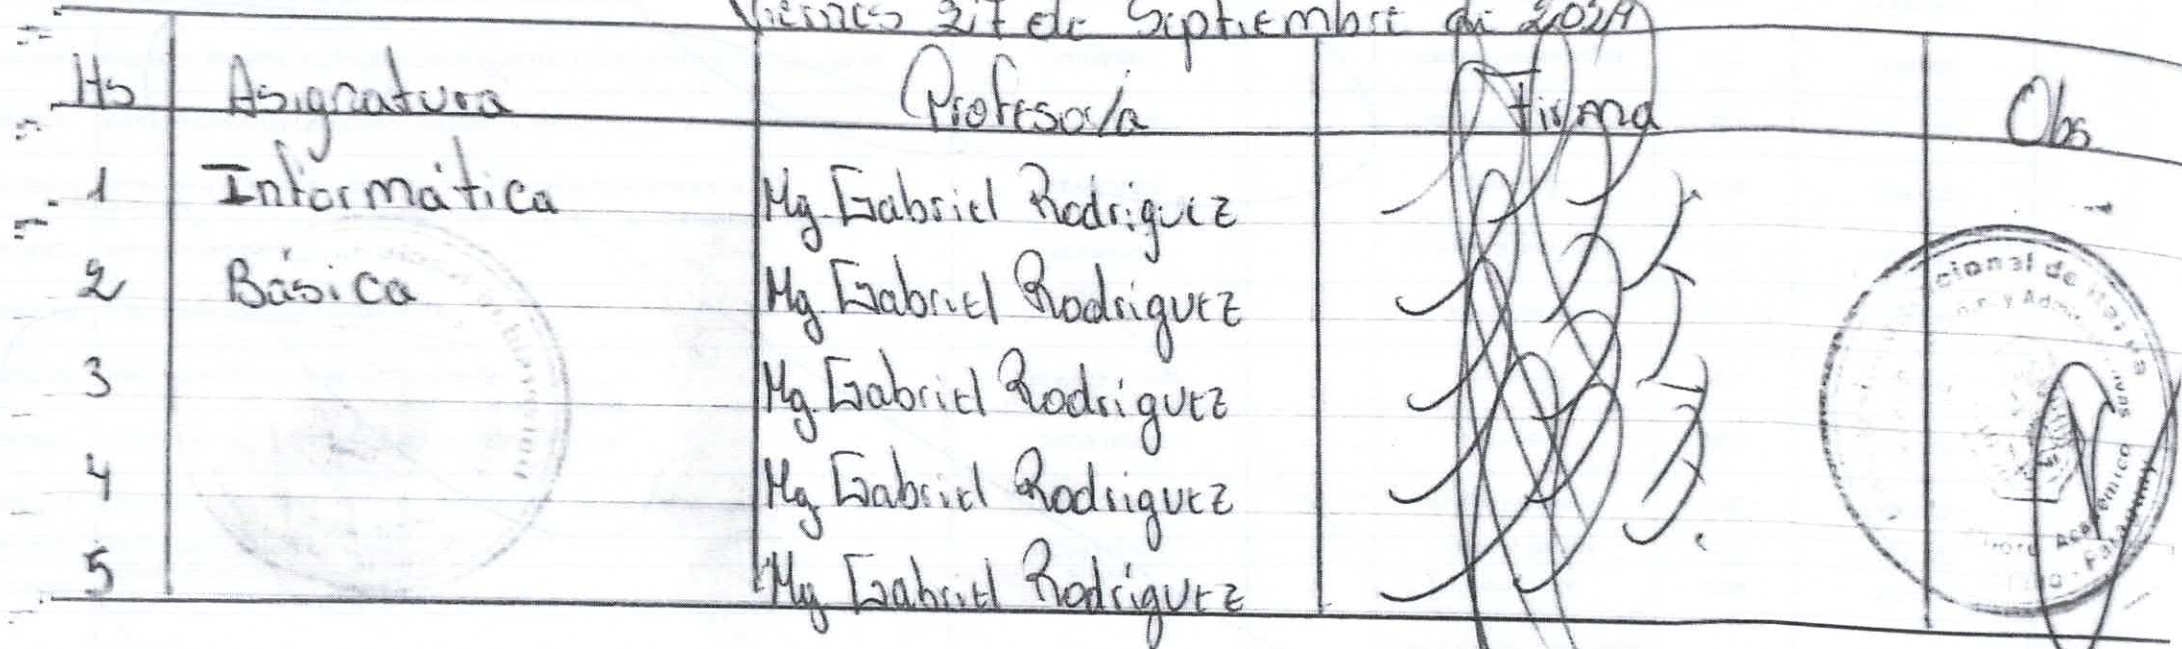 Viernes 27 de Septiembre de 2024
Hs Asignatura Profesor/a Firma Obs
1 Informática Mg Gabriel Rodriguez
2 Básica Mg Gabriel Rodriguez
3 Mg Gabriel Rodriguez
4 Mg Gabriel Rodriguez
5 Mg Gabriel Rodriguez
cional de Itapúa
y Admi